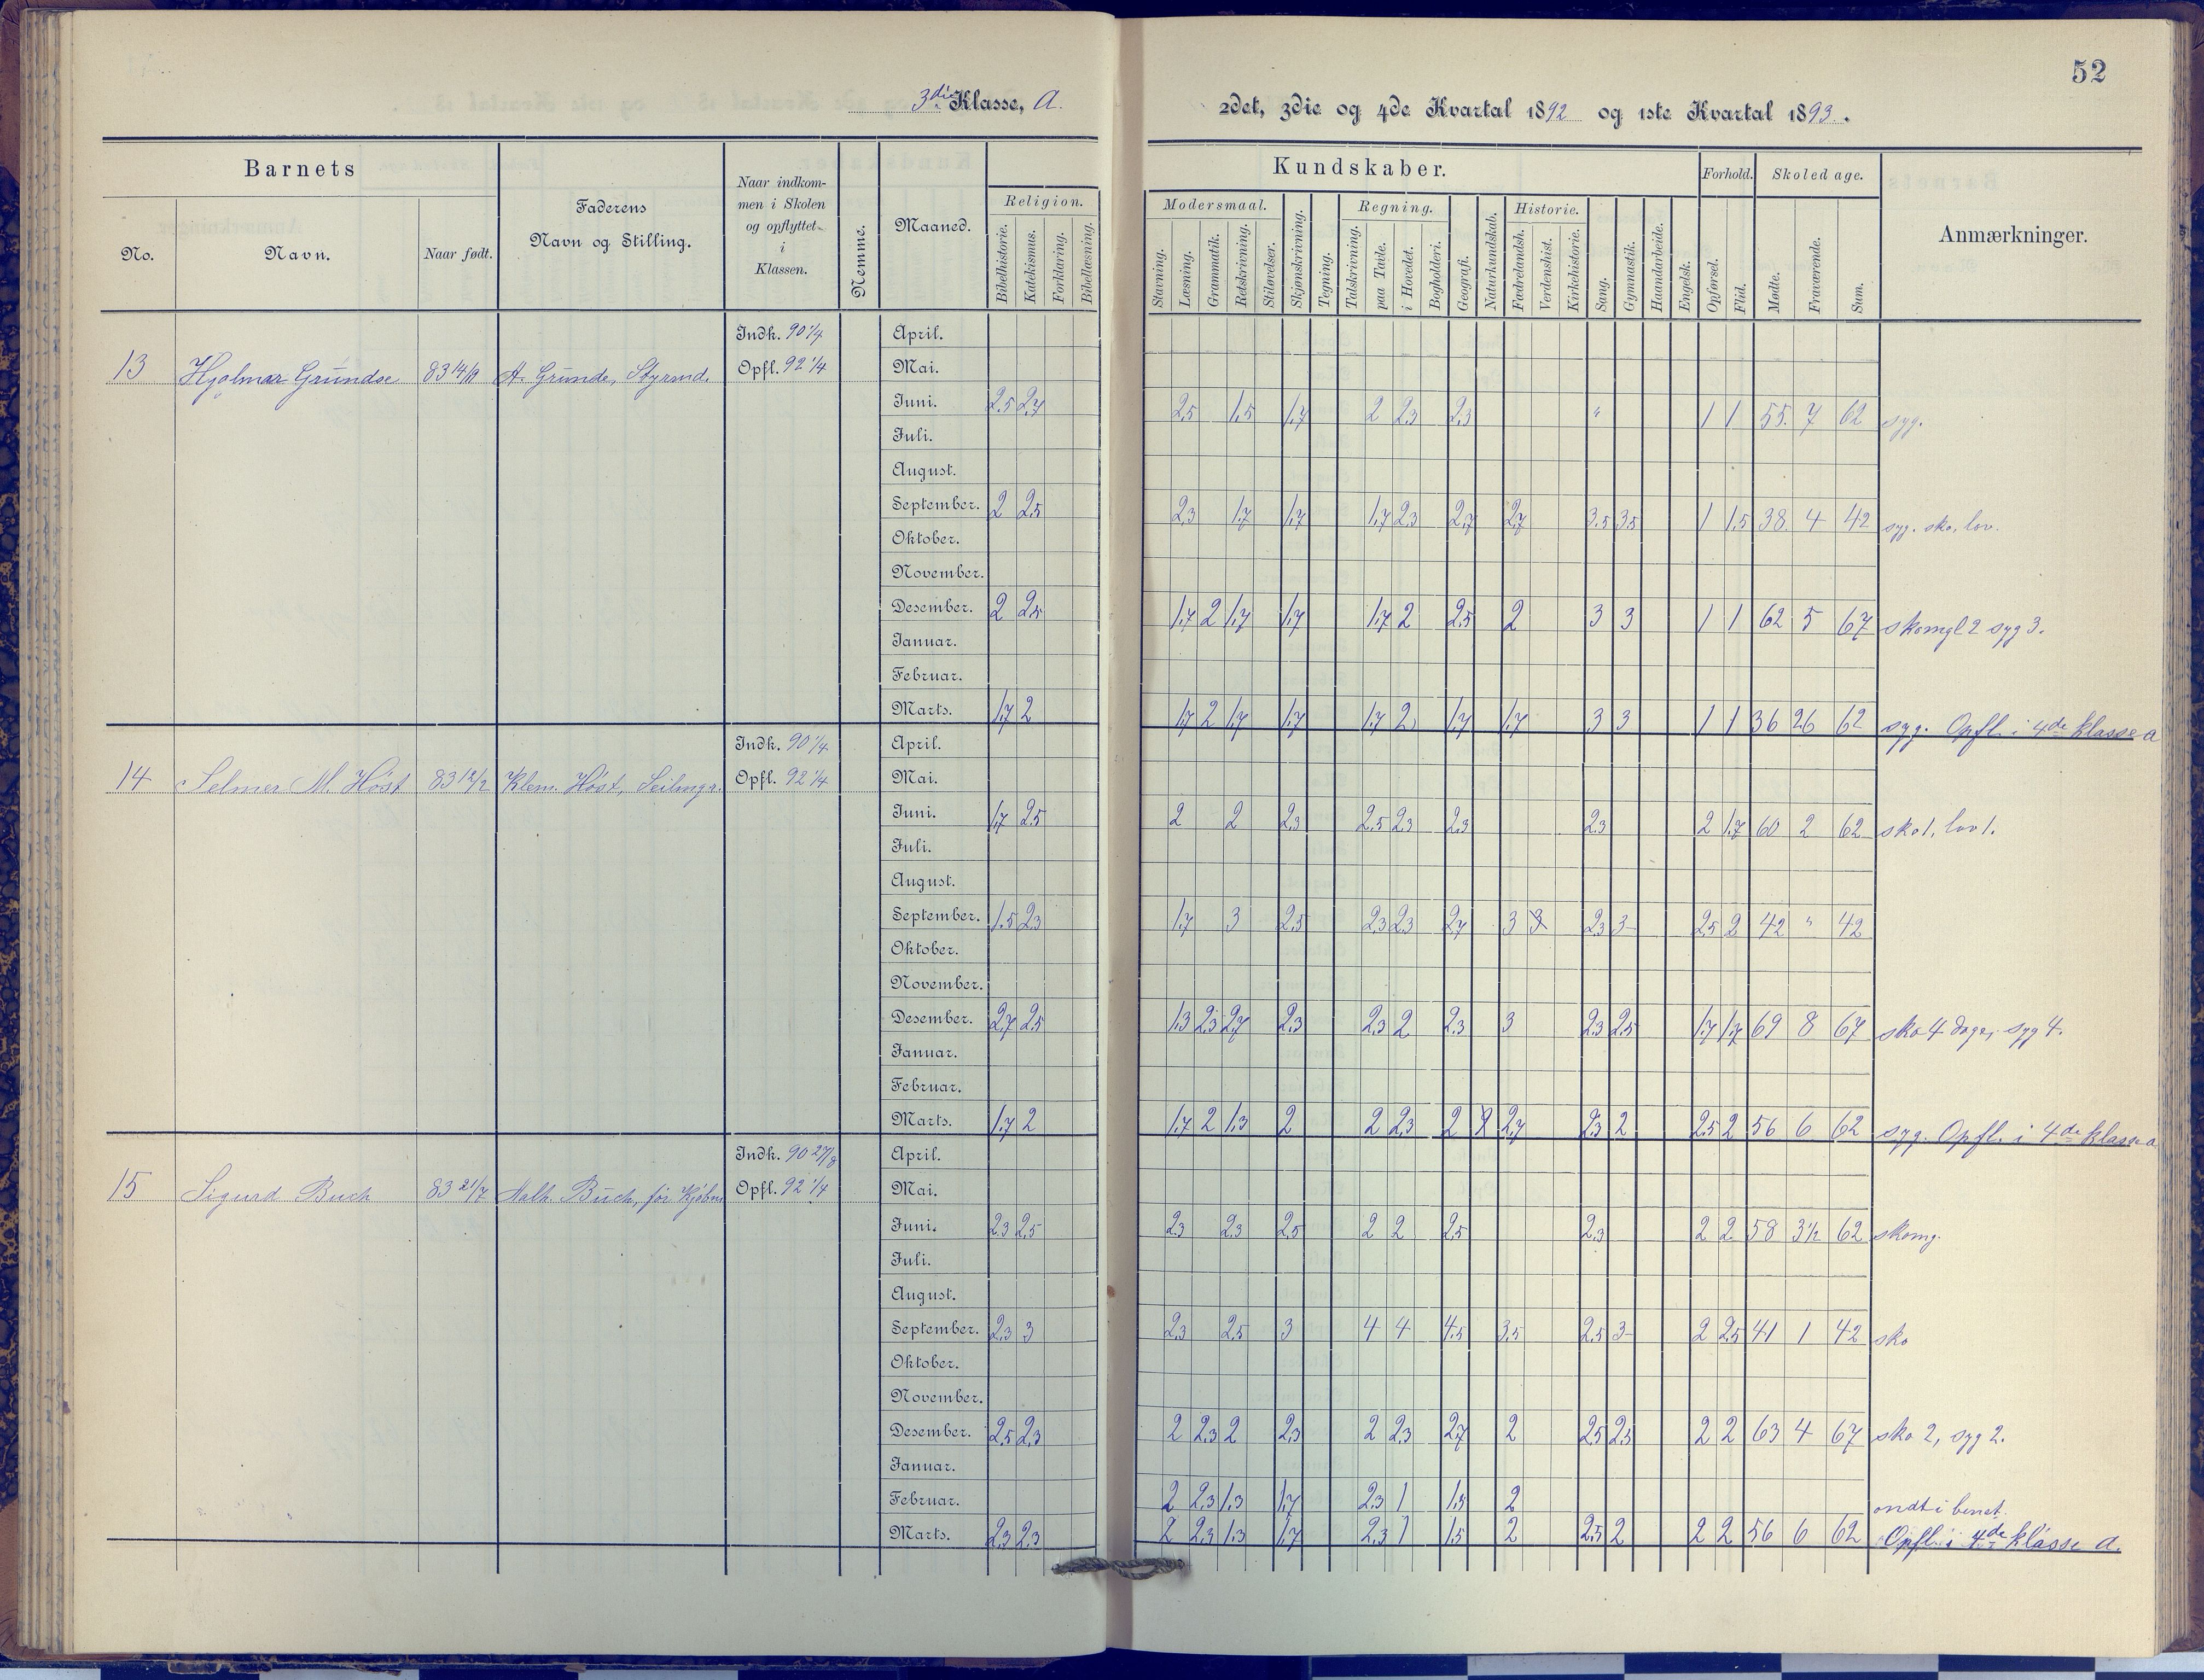 52
3die Klasse, A.
2det, 3die og 4de Kvartal 1892 og 1ste Kvartal 1893.
Barnets
No.
Navn.
Naar født.
Faderens
Navn og Stilling.
Naar indkom-
men i Skolen
og opflyttet
i
Klassen.
Nemme.
Maaned.
Kundskaber.
Religion.
Bibelhistorie.
Katekismus.
Forklaring.
Bibellæsning.
Modersmaal.
Stavning.
Læsning.
Grammatik.
Retskrivning.
Stiløvelser.
Skjønskrivning.
Tegning.
Regning.
Talskrivning.
paa Tavle.
i Hovedet.
Bogholderi.
Geografi.
Naturkundskab.
Historie.
Fædrelandsh.
Verdenshist.
Kirkehistorie.
Sang.
Gymnastik.
Haandarbeide.
Engelsk.
Forhold.
Opførsel.
Flid.
Skoledage.
Mødte.
Fraværende.
Sum.
Anmærkninger.
Indk. 90 1/4 April.
13 Hjalmar Grundse A. Grunde, Styrmd. Opfl. 92 1/4 Mai.
Juni. 2.5 2.7 2.5 1.5 1.7 2 2.3 2.3 " 1 1 55 7 62 syg.
Juli.
August.
September. 2 2.5 2.3 1.7 1.7 1.7 2.3 2.7 2.7 3.5 3.5 1 1.5 38 4 42 syg. sko, lov.
Oktober.
November.
Desember. 2 2.5 1.7 2 1.7 1.7 1.7 2 2.5 2 3 3 1 1 62 5 67 skomgl 2 syg 3.
Januar.
Februar.
Marts. 1.7 2 1.7 2 1.7 1.7 1.7 2 1.7 1.7 3 3 1 1 36 26 62 syg. Opfl. i 4de klasse a
Indk. 90 1/4 April.
14 Selmer M. Høst 83 12/2 Klem. Høst, Opfl. 92 1/4 Mai.
Juni. 1.7 2.5 2 2 2.3 2.5 2.3 2.3 2.3 2 1.7 60 2 62 sko 1, lov 1.
Juli.
August.
September. 1.5 2.3 1.7 3 2.5 2.3 2.3 2.7 3 3 2.3 3 2.5 2 42 " 42
Oktober.
November.
Desember. 2.7 2.5 1.3 2.3 2.7 2.3 2.3 2 2.3 3 2.3 2.5 1.7 1.7 69 8 67 sko 4 dage, syg 4.
Januar.
Februar.
Marts. 1.7 2 1.7 2 1.3 2 2 2.3 2 2.7 2.3 2 2.5 2 56 6 62 syg. Opfl. i 4de klasse a
Indk. 90 27/8 April.
15 Sigurd Buch 83 21/7 Buch, Opfl. 92 1/4 Mai.
Juni. 2.3 2.5 2.3 2.3 2.5 2 2 2.5 2.3 2 2 58 3½ 62 skomg.
Juli.
August.
September. 2.3 3 2.3 2.5 3 4 4 4.5 3.5 2.5 3 2 2.5 41 1 42 sko
Oktober.
November.
Desember. 2.5 2.3 2 2.3 2 2.3 2 2.3 2.7 2 2.5 2.5 2 2 63 4 67 sko 2, syg 2.
Januar.
Februar. 2 2.3 1.3 1.7 2.3 1 1.5 2 ondt i benet.
Marts. 2.3 2.3 2 2.3 1.3 1.7 2.3 1 1.5 2 2.5 2 2 2 56 6 62 Opfl. i 4de klasse a.